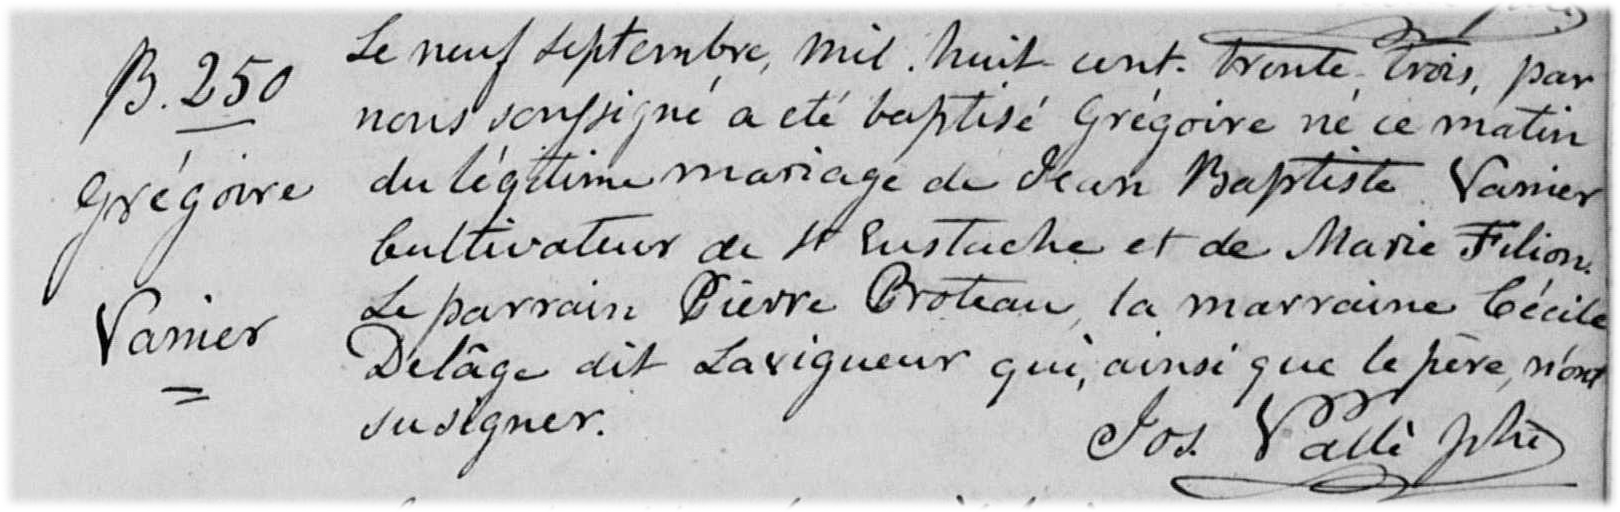 B. 250
Grégoire
Vanier
Le neuf septembre, mil. huit cent. trente-trois, par
nous soussigné a eté baptisé Grégoire né ce matin
du légitime mariage de Jean Baptiste Vanier
Cultivateur de St Eustache et de Marie Filion.
Le parrain Pierre Proteau, la marraine Cécile
Delâge dit Lavigueur qui, ainsi que le père, n'ont
su signer.
Jos. Vallé